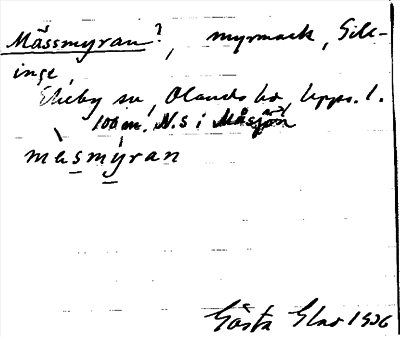 Mässmyran?, myrmark, Gill-
inge,
Ekeby sn, Olands hd, Upps. l.
100 m. N.s i Måsjön
masmyran
Gösta Elas 1936